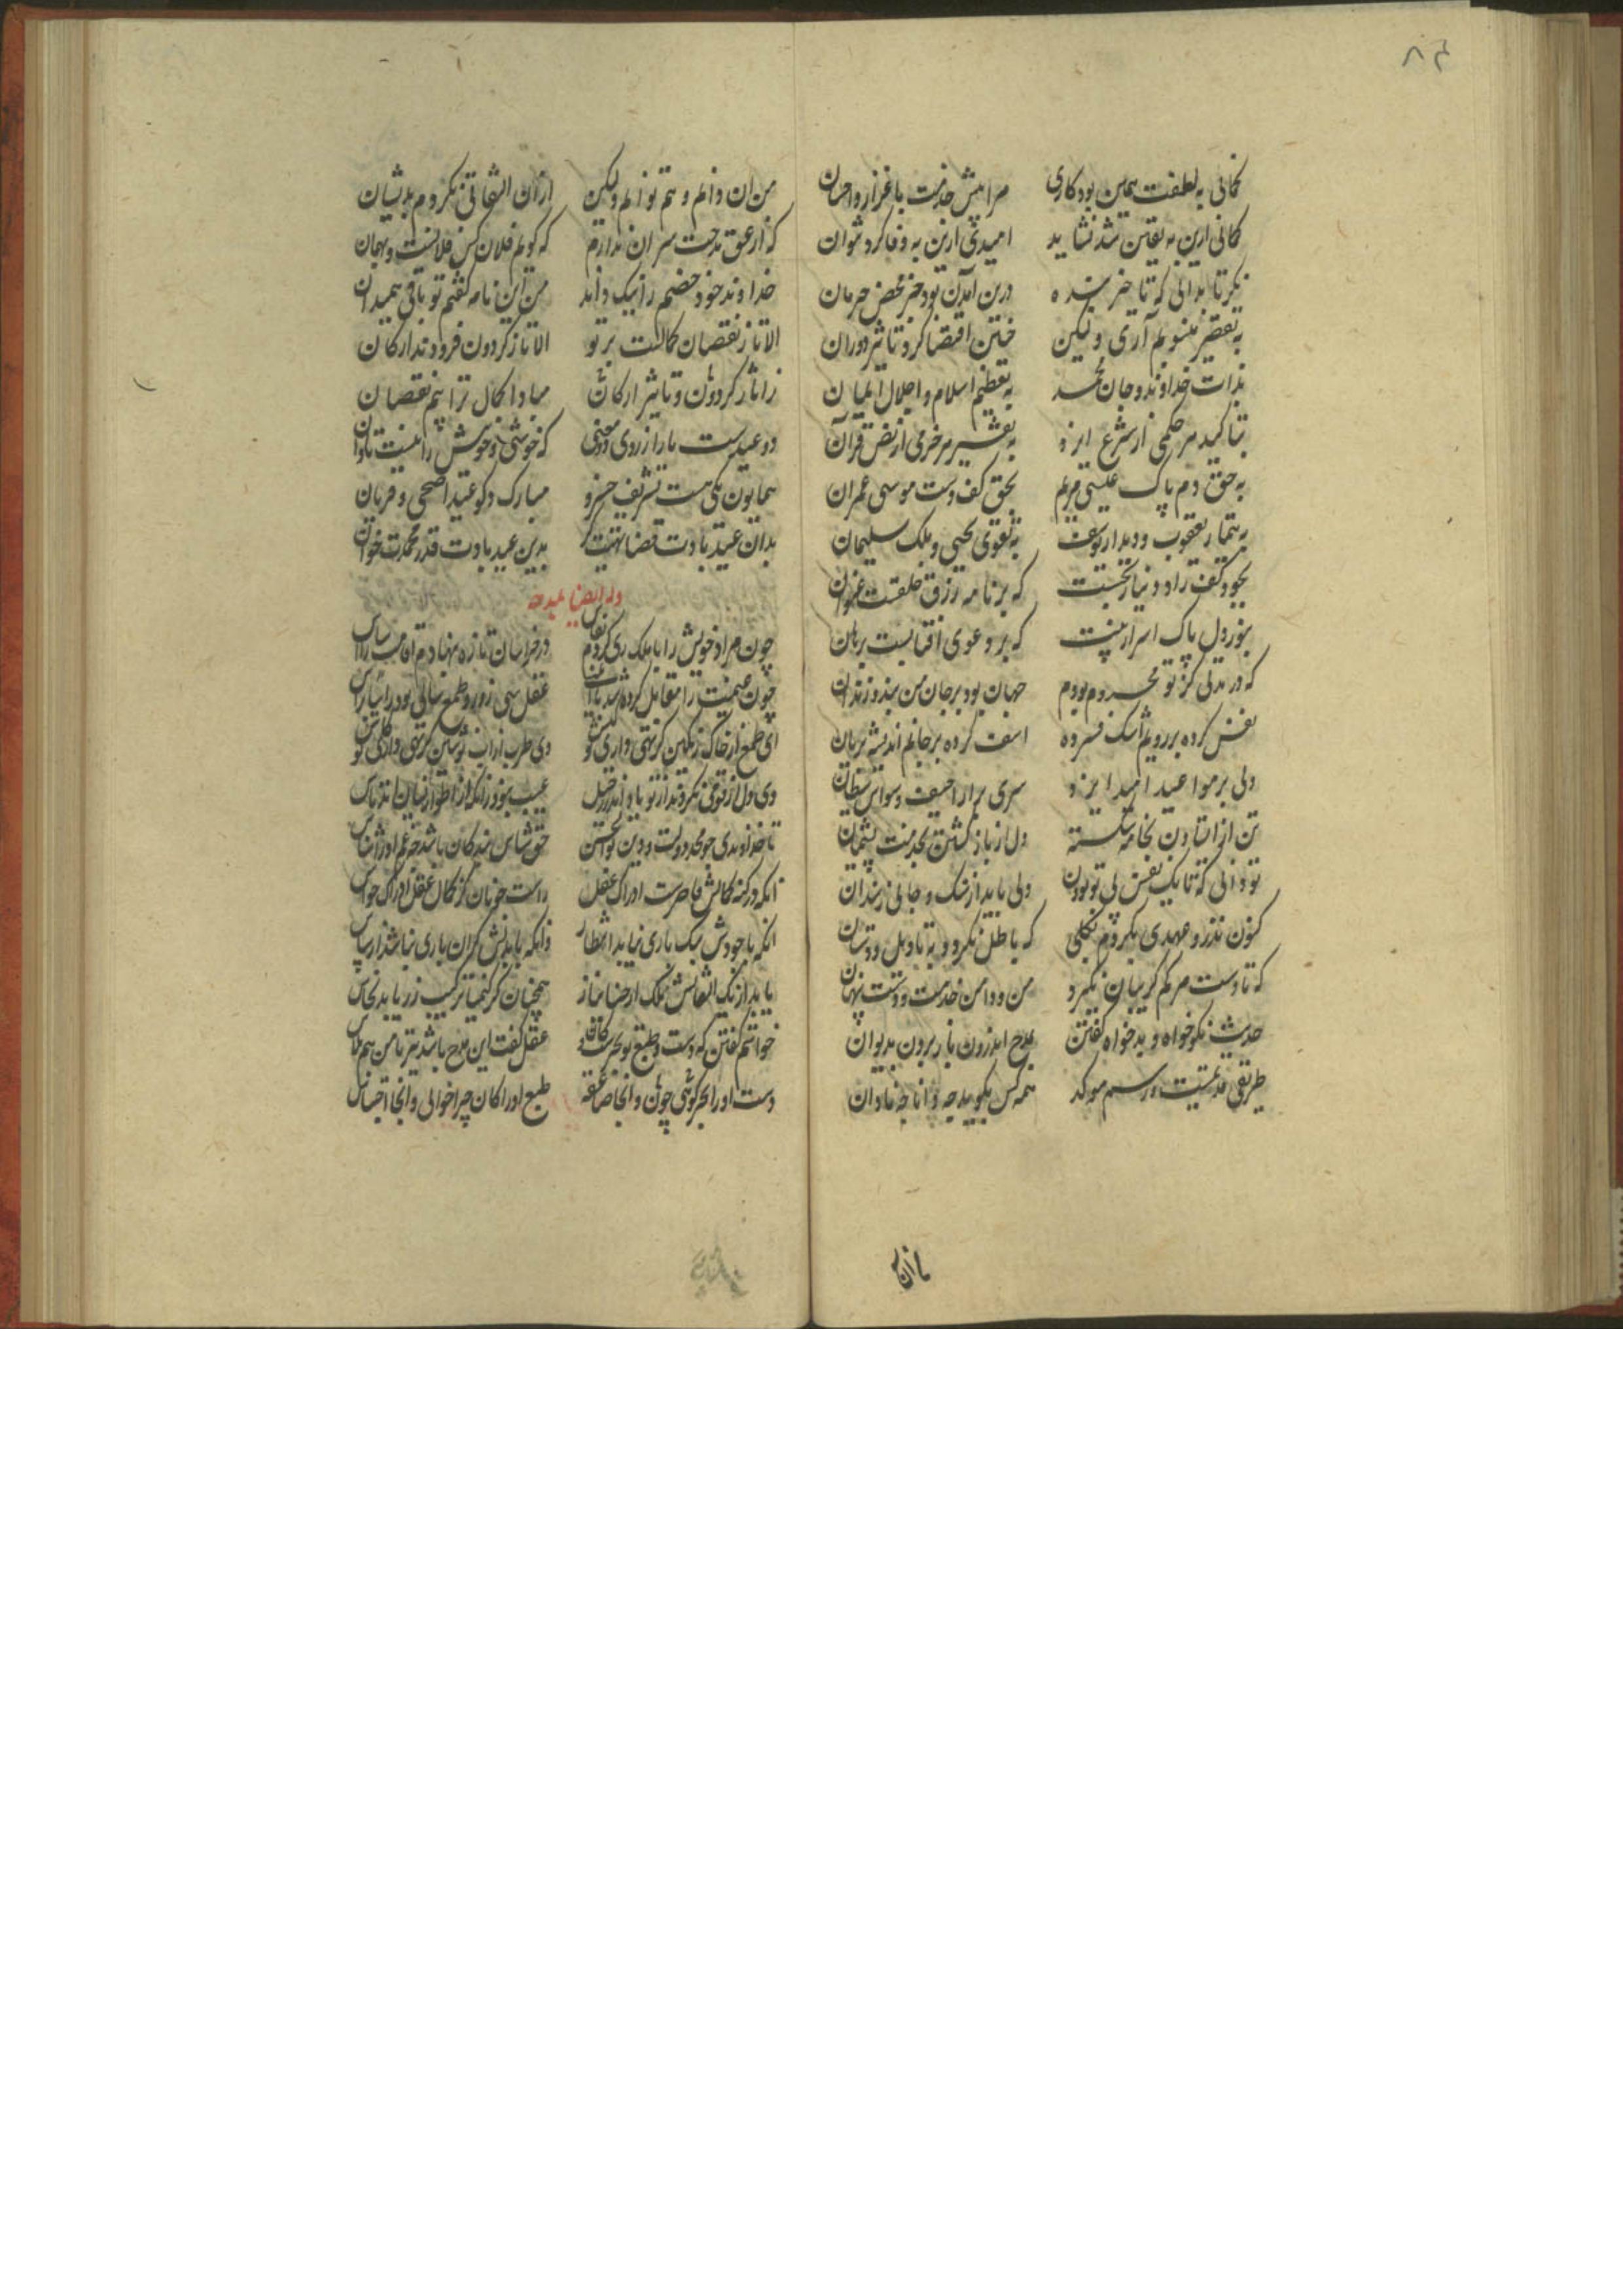 ۸۴
گمانی به لطفت همین بود کاری
مرا پیش خدمت باعزاز و احسان
گمانی ازین به یقین شد نشاید
امیدی ازین به وفا کرد نتوان
نگر تا ندانی که تا خیر بنده
درین آمدن بود جز محض حرمان
به تقصیر منسوبم آری ولیکن
چنین اقتضا کرد تاثیر دوران
بذات خداوند و جان محمد
به تعظیم اسلام و اجلال ایمان
بتاکید هر حکمی از شرع ایزد
به تفسیر هر حرفی از نص قرآن
به حق دم پاک عیسی مریم
بحق کف دست موسی عمران
به تیمار یعقوب و دیدار یوسف
به تقوی یحیی و ملک سلیمان
بجود کف راد و نیاز بخشت
که بر نامه رزق خلقست عنوان
بنور دل پاک اسرار بینت
که بر دعوی آفتابست برهان
که در مدتی کز تو محروم بودم
جهان بود بر جان من بند و زندان
نفس کرده بر رویم اشک فسرده
اسف کرده بر جانم اندیشه بریان
ولی بر مواعید امید ایزد
سری پر ز وسواس شیطان
تن از ایستادن بخدمت شکسته
دل از باز گشتن بخدمت پشیمان
تو دانی که تا یک نفس بی تو بودن
ولی باید از سنگ و جانی ز سندان
کنون نذر و عهدی بکردم بکلی
که باطل نگردد به تاویل و دستان
که تا دست مرگم گریبان نگیرد
من و دامن خدمت و دست پیمان
حدیث نکوخواه و بدخواه گفتن
بمدح اندرون نار بردن بدیوان
طریقی قدیمست و رسم موکد
همه کس بگوید چه دانا چه نادان
من آن دانم و هم توانم ولیکن
ازان التفاتی نکردم بدیشان
که از عشق مدحت سر آن ندارم
که گویم فلان کس فلانست و بهمان
خداوند خود خصم را نیک داند
من این نامه گفتم تو باقی همیدان
الا تا ز نقصان کمالست برتر
الا تا ز گردون فرودند ارکان
ز آثار گردون و تاثیر ارکان
مبادا کمال ترا بیم نقصان
دو عیدست ما را ز روی دو معنی
که خوشی و خوبیش را نیست تاوان
همایون یکی هست تشریف خسرو
مبارک دگر عید اضحی و قربان
بدان عید بادت قضا تهنیت گر
بدین عید بادت قدر محمدت خوان
وله ایضا یمدحه
چون مراد خویش را با ملک ری کردم قیاس
در خراسان تازه بنهادم اقامت را اساس
چون غنیمت را مقابل کرده شد با ایمنی
عقل سی روز و طمع سالی بود رأسا براس
ای طمع از خاک رنگین گر تهی داری تو کیس
وی طرب از آب رنگین گر تهی داری تو کاس
وی دل ار قومی نکردند از تو یاد اندر رحیل
عیب نبود زانکه از اطوار نسناسند ناس
تا خداوندی چو مجد دولت و دین بوالحسن
حق شناس بندگان باشد چه غم او را شناس
آنکه در کنه کمالش قاصرست ادراک عقل
راست چونان کز کمال عقل ادراک حواس
آنکه با جودش سبک باری نیابد انتظار
وانکه با بذلش گران باری نباشد از سپاس
یابد از یک التفاتش ملک از حنا نیاز
همچنان کز کیمیا ترکیب زر یابد نحاس
خواستم گفتن که دست و طبع تو بحرست و کان
عقل گفت این مدح باشد نیز با من هم پلاس
دست او را بحر گوئی چون و آنجا صاعقه
طبع او را کان چرا خوانی و آنجا احتباس